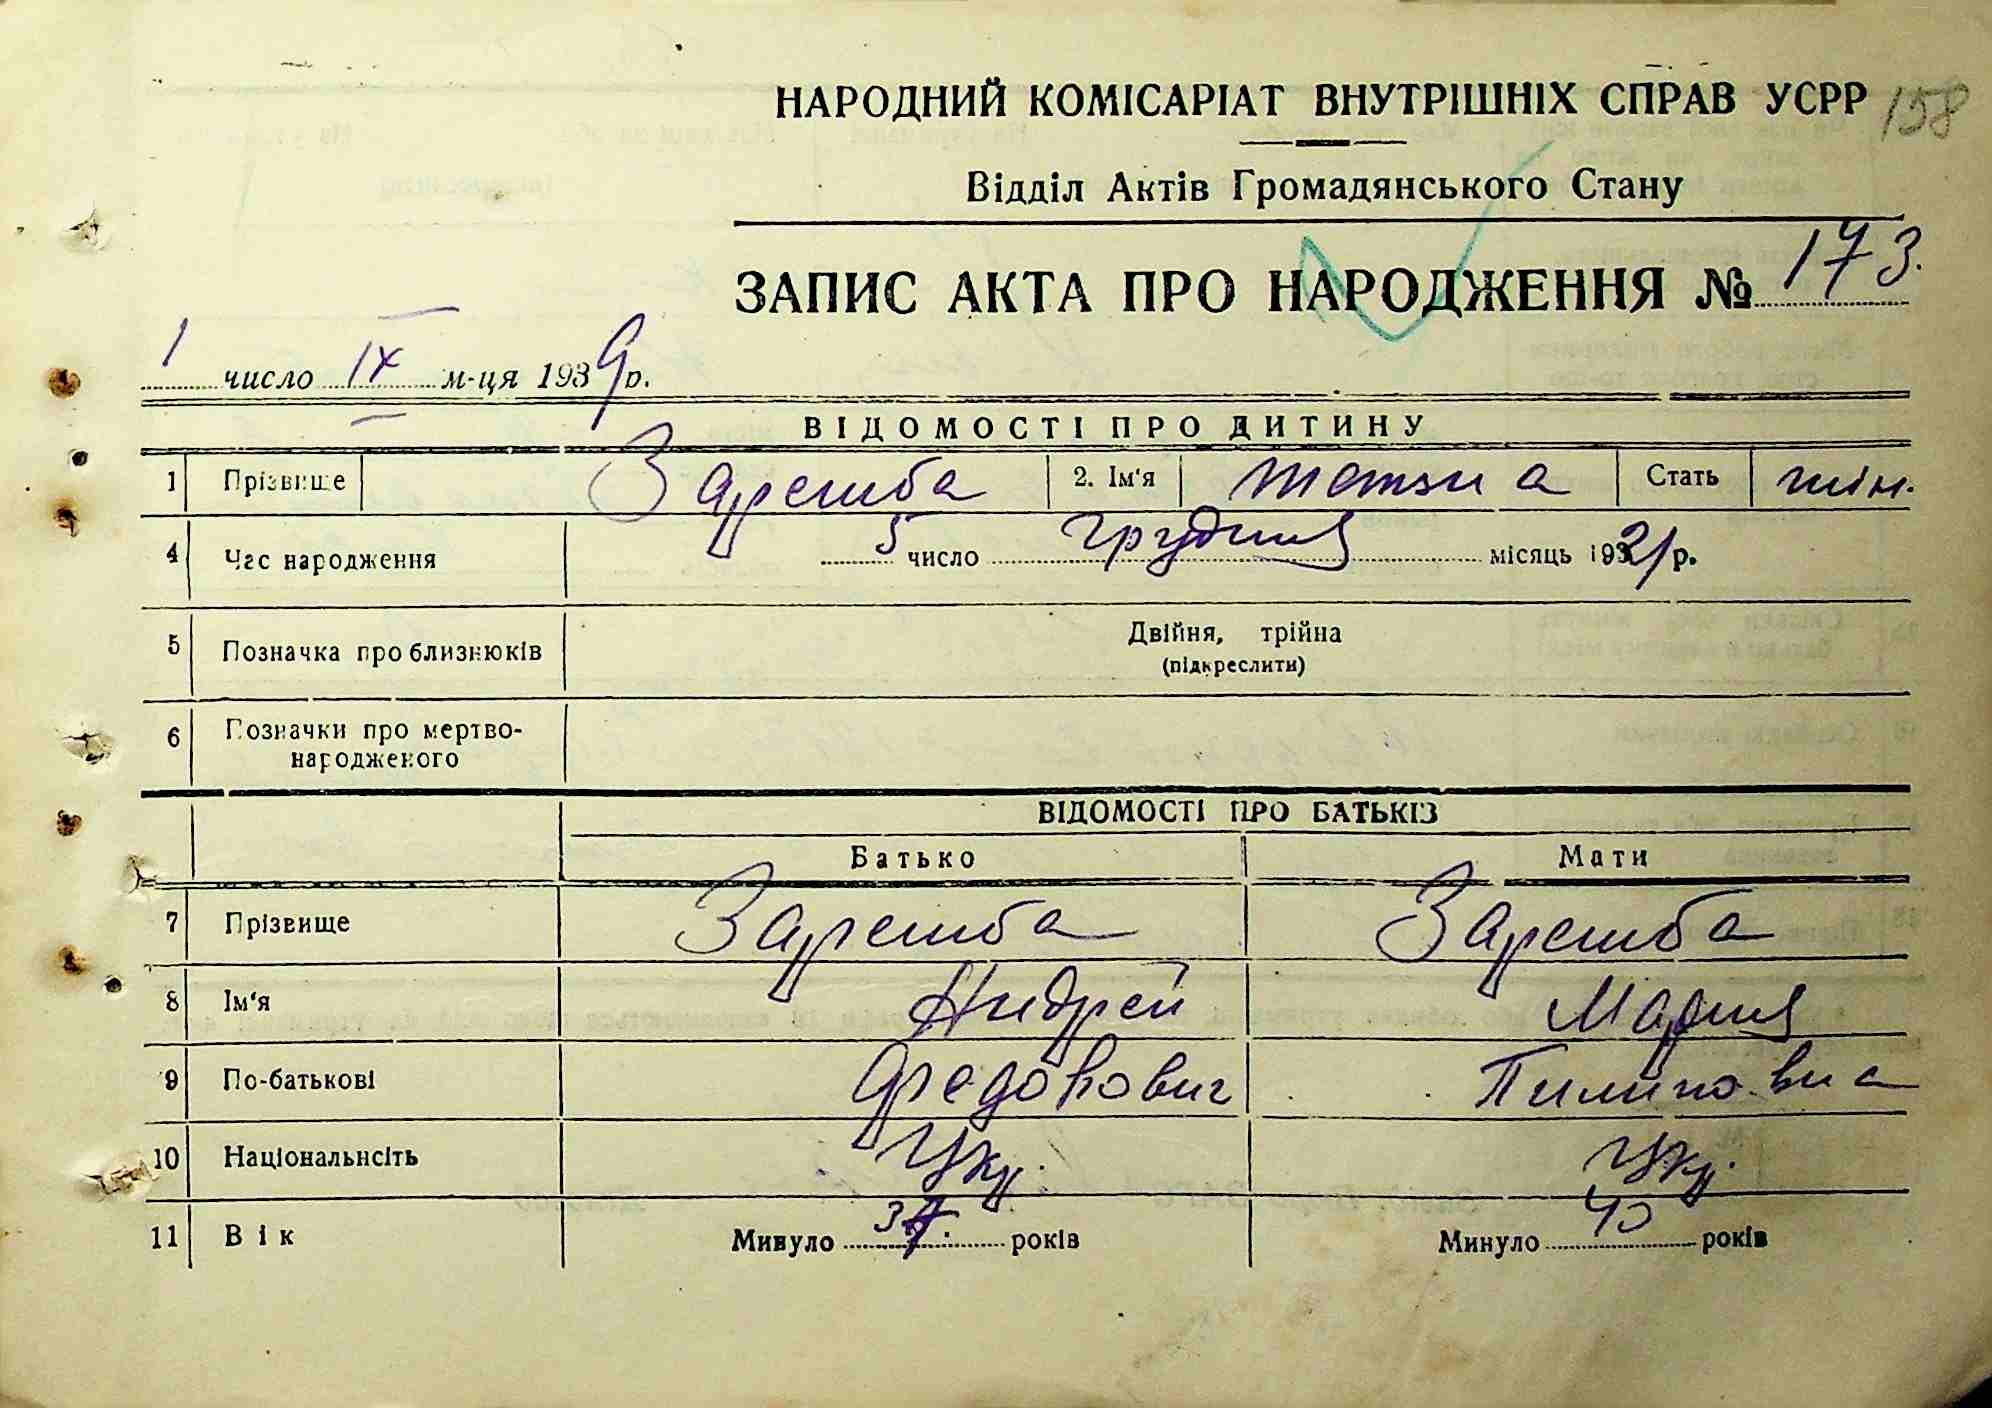 НАРОДНИЙ КОМІСАРІАТ ВНУТРІШНІХ СПРАВ УСРР 158
Відділ Актів Громадянського Стану
ЗАПИС АКТА ПРО НАРОДЖЕННЯ № 173.
1 число IX м-ця 1939 р.
ВІДОМОСТІ ПРО ДИТИНУ
1 Прізвище Заремба 2. Ім'я Стать жін.
4 Час народження 5 число грудня місяць 1921 р.
5 Позначка про близнюків Двійня, трійна
(підкреслити)
6 Позначки про мертво-
народженого
ВІДОМОСТІ ПРО БАТЬКІВ
Батько Мати
7 Прізвище Заремба Заремба
8 Ім'я Андрей Мария
9 По-батькові Федорович Пилиповна
10 Національнсіть Укр. Укр.
11 Вік Минуло 37. років Минуло 40 років